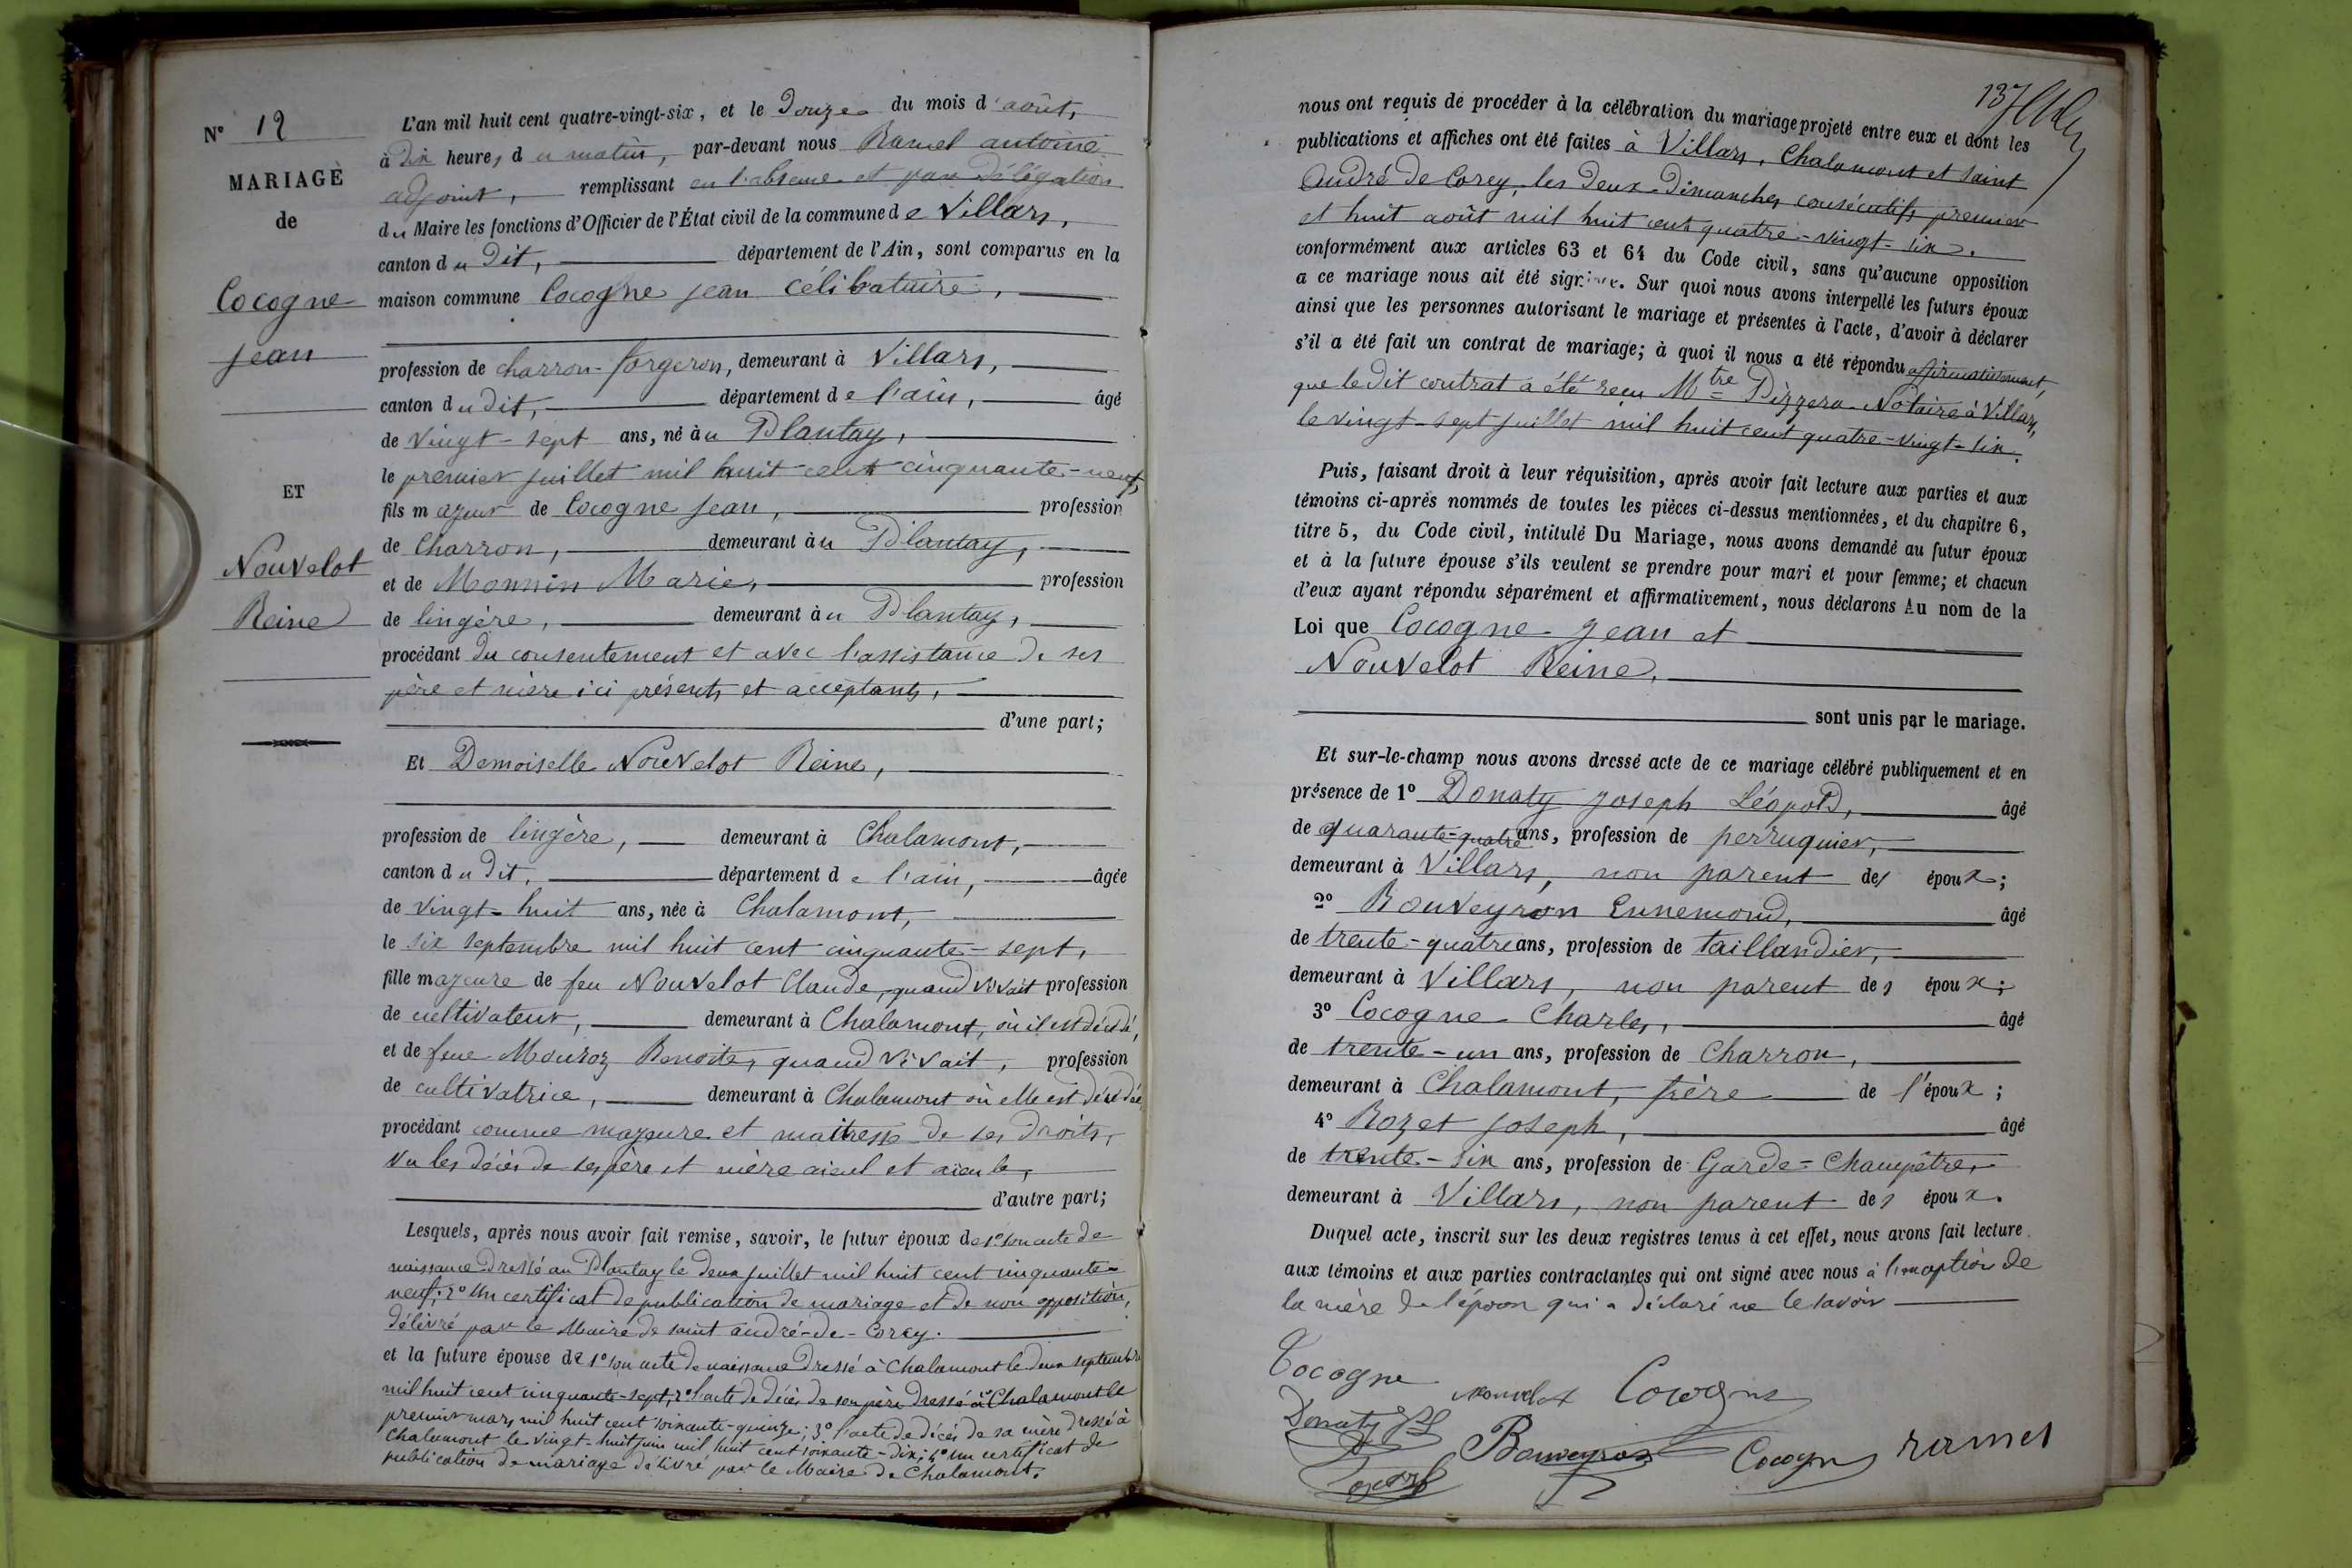 N° 12
MARIAGE
de
Cocogne
Jean
ET
Nouvelot
Reine
L'an mil huit cent quatre-vingt-six, et le Douze du mois d'août,
à Dix heures du matin, par-devant nous Ramel antoine
adjoint, remplissant en l'absence et par Délégation
du Maire les fonctions d'Officier de l'État civil de la commune de Villars,
canton du Dit, département de l'Ain, sont comparus en la
maison commune Cocogne Jean célibataire,
profession de charron-forgeron, demeurant à Villars,
canton du dit, département de l'ain, âgé
de vingt-sept ans, né au Plantay,
le premier juillet mil huit cent cinquante-neuf,
fils majeur de Cocogne Jean, profession
de Charron, demeurant au Plantay,
et de Monnin Marie, profession
de lingère, demeurant au Plantay,
procédant du consentement et avec l'assistance de ses
père et mère ici présents et acceptants,
d'une part;
Et Demoiselle Nouvelot Reine,
profession de lingère, demeurant à Chalamont,
canton du dit, département de l'ain, âgée
de vingt-huit ans, née à Chalamont,
le six septembre mil huit cent cinquante-sept,
fille majeure de feu Nouvelot Claude, quand vivait profession
de cultivateur, demeurant à Chalamont, où il est décédé,
et de feue Mouroz Benoite, quand vivait, profession
de cultivatrice, demeurant à Chalamont où elle est décédée,
procédant comme majeure et maitresse de ses droits,
vu les décès de ses père et mère aïeul et aïeule,
d'autre part;
Lesquels, après nous avoir fait remise, savoir, le futur époux de 1° son acte de
naissance Dressé au Plantay le deux juillet mil huit cent cinquante-
neuf; 2° Un certificat de publication de mariage et de non opposition,
délivré par le Maire de saint andré-de-Corcy.
et la future épouse de 1° son acte de naissance Dressé à Chalamont le deux septembre
mil huit cent cinquante-sept, 2° l'acte de décès de son père Dressé à Chalamont le
premier mars mil huit cent soixante-quinze; 3° l'acte de décès de sa mère dressé à
Chalamont le vingt-huit juin mil huit cent soixante-dix; 4° un certificat de
publication de mariage délivré par le Maire de Chalamont.
137
nous ont requis de procéder à la célébration du mariage projeté entre eux et dont les
publications et affiches ont été faites à Villars, Chalamont et saint
André de Corcy, les Deux Dimanches consécutifs premier
et huit août mil huit cent quatre-vingt-six.
conformément aux articles 63 et 64 du Code civil, sans qu'aucune opposition
a ce mariage nous ait été signifiée. Sur quoi nous avons interpellé les futurs époux
ainsi que les personnes autorisant le mariage et présentes à l'acte, d'avoir à déclarer
s'il a été fait un contrat de mariage; à quoi il nous a été répondu affirmativement,
que le dit contrat a été reçu Mtre Pizzera Notaire à Villars,
le vingt-sept juillet mil huit cent quatre-vingt-six.
Puis, faisant droit à leur réquisition, après avoir fait lecture aux parties et aux
témoins ci-après nommés de toutes les pièces ci-dessus mentionnées, et du chapitre 6,
titre 5, du Code civil, intitulé Du Mariage, nous avons demandé au futur époux
et à la future épouse s'ils veulent se prendre pour mari et pour femme; et chacun
d'eux ayant répondu séparément et affirmativement, nous déclarons Au nom de la
Loi que Cocogne Jean et
Nouvelot Reine,
sont unis par le mariage.
Et sur-le-champ nous avons dressé acte de ce mariage célébré publiquement et en
présence de 1° Donaty Joseph Léopold, âgé
de quarante-quatre ans, profession de perruquier,
demeurant à Villars, non parent des époux;
2° Bouveyron Ennemond, âgé
de trente-quatre ans, profession de taillandier,
demeurant à Villars, non parent des époux;
3° Cocogne Charles, âgé
de trente-un ans, profession de Charron,
demeurant à Chalamont, frère de l'époux;
4° Rozet Joseph, âgé
de trente-six ans, profession de Garde-Champêtre,
demeurant à Villars, non parent des époux.
Duquel acte, inscrit sur les deux registres tenus à cet effet, nous avons fait lecture
aux témoins et aux parties contractantes qui ont signé avec nous à l'exception de
la mère de l'époux qui a déclaré ne le savoir
Cocogne nouvelot Cocogne
Donaty
Bouveyron Cocogne ramel